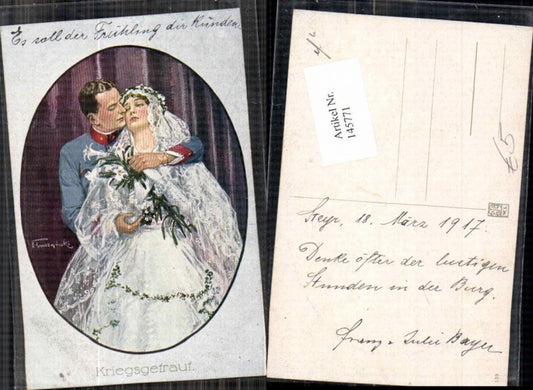 Es soll der Frühling dir künden.
Kriegsgetraut.
Artikel Nr.
145771
Steyr, 18. März 1917.
Denke öfter der lustigen
Stunden in der Burg.
Franz + Julie Bayer